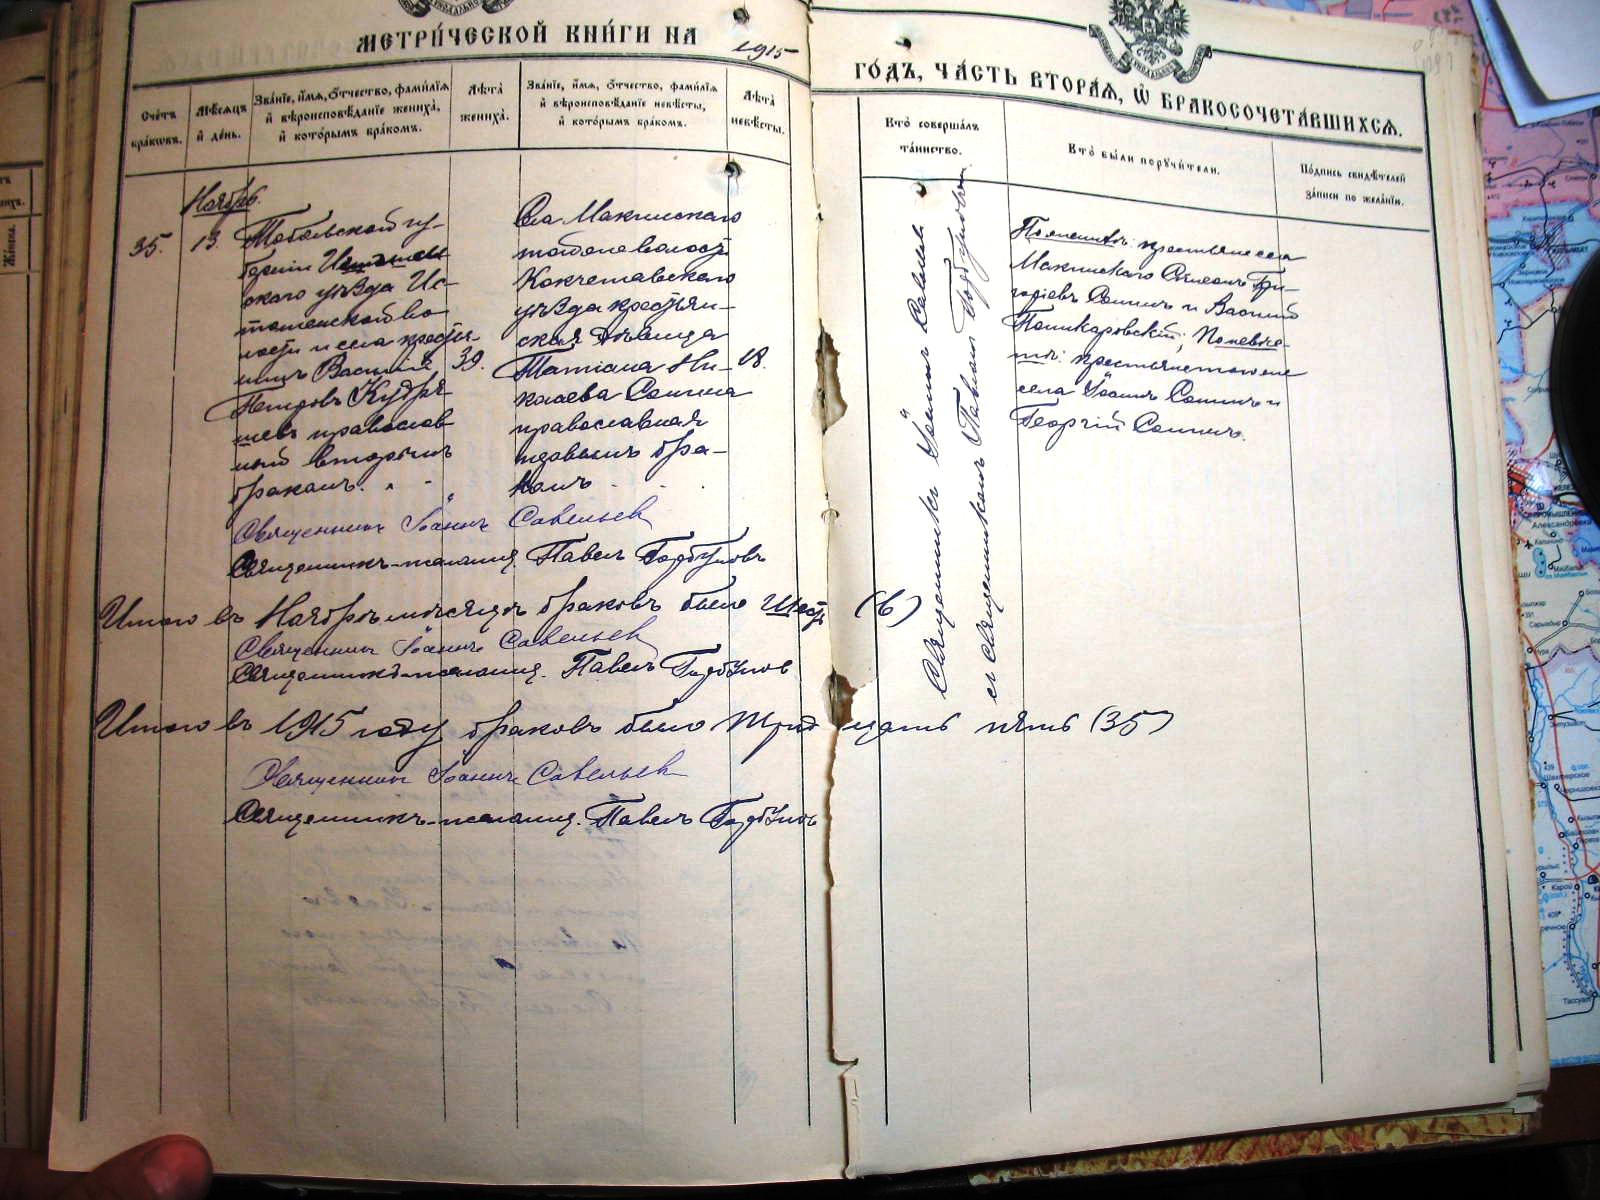 МЕТРИ́ЧЕСКОЙ КНИ́ГИ НА 1915
ГО́ДЪ, ЧА́СТЬ ВТОРА́Я, Ѡ҆ БРАКОСОЧЕТА́ВШИХСѦ.
Сче́тъ бра́кѡвъ.
Мѣ́сяцъ и҆ де́нь.
Зва́нїе, и҆́мѧ, ѻ҆́тчество, фами́лїѧ
и҆ вѣроисповѣ́данїе жениха̀,
и҆ кото́рымъ бра́комъ.
Лѣ́та жениха̀.
Зва́нїе, и҆́мѧ, ѻ҆́тчество, фами́лїѧ
и҆ вѣроисповѣ́данїе невѣ́сты,
и҆ кото́рымъ бра́комъ.
Лѣ́та невѣ́сты.
Кто̀ соверша́лъ
та́инство.
Кто̀ бы́ли порꙋчи́тели.
По́дпись свидѣ́телей
за́писи по жела́нїю.
Ноябрь.
35.
13.
Тобольской гу-
берніи Ишимс
каго уѣзда Ис-
тошенской во
лости и села кресть-
янинъ Василій
Петровъ Кудря
шевъ православ
ный вторымъ
бракомъ.
39.
Села Макинскаго
тойже волости
Кокчетавскаго
уѣзда крестьян-
ская дѣвица
Татіана Ни-
колаева Сонина
православная
первымъ бра-
комъ
18.
Священникъ Іоаннъ Савельев
съ священникомъ Павломъ Горбуновым
По женихѣ: крестьяне села
Макинскаго Симеонъ Гри-
горіевъ Сонинъ и Василій
Поликаровскій; По невѣс-
тѣ: крестьяне того же
села Іоаннъ Сонинъ и
Георгій Сонинъ.
Священникъ Іоаннъ Савельев
Священникъ-псаломщ. Павелъ Горбуновъ
Итого въ Ноябрѣ мѣсяцѣ браковъ было Шесть (6)
Священникъ Іоаннъ Савельев
Священникъ-псаломщ. Павелъ Горбунов
Итого въ 1915 году браковъ было тридцать пять (35)
Священникъ Іоаннъ Савельев
Священникъ-псаломщ. Павелъ Горбуновъ